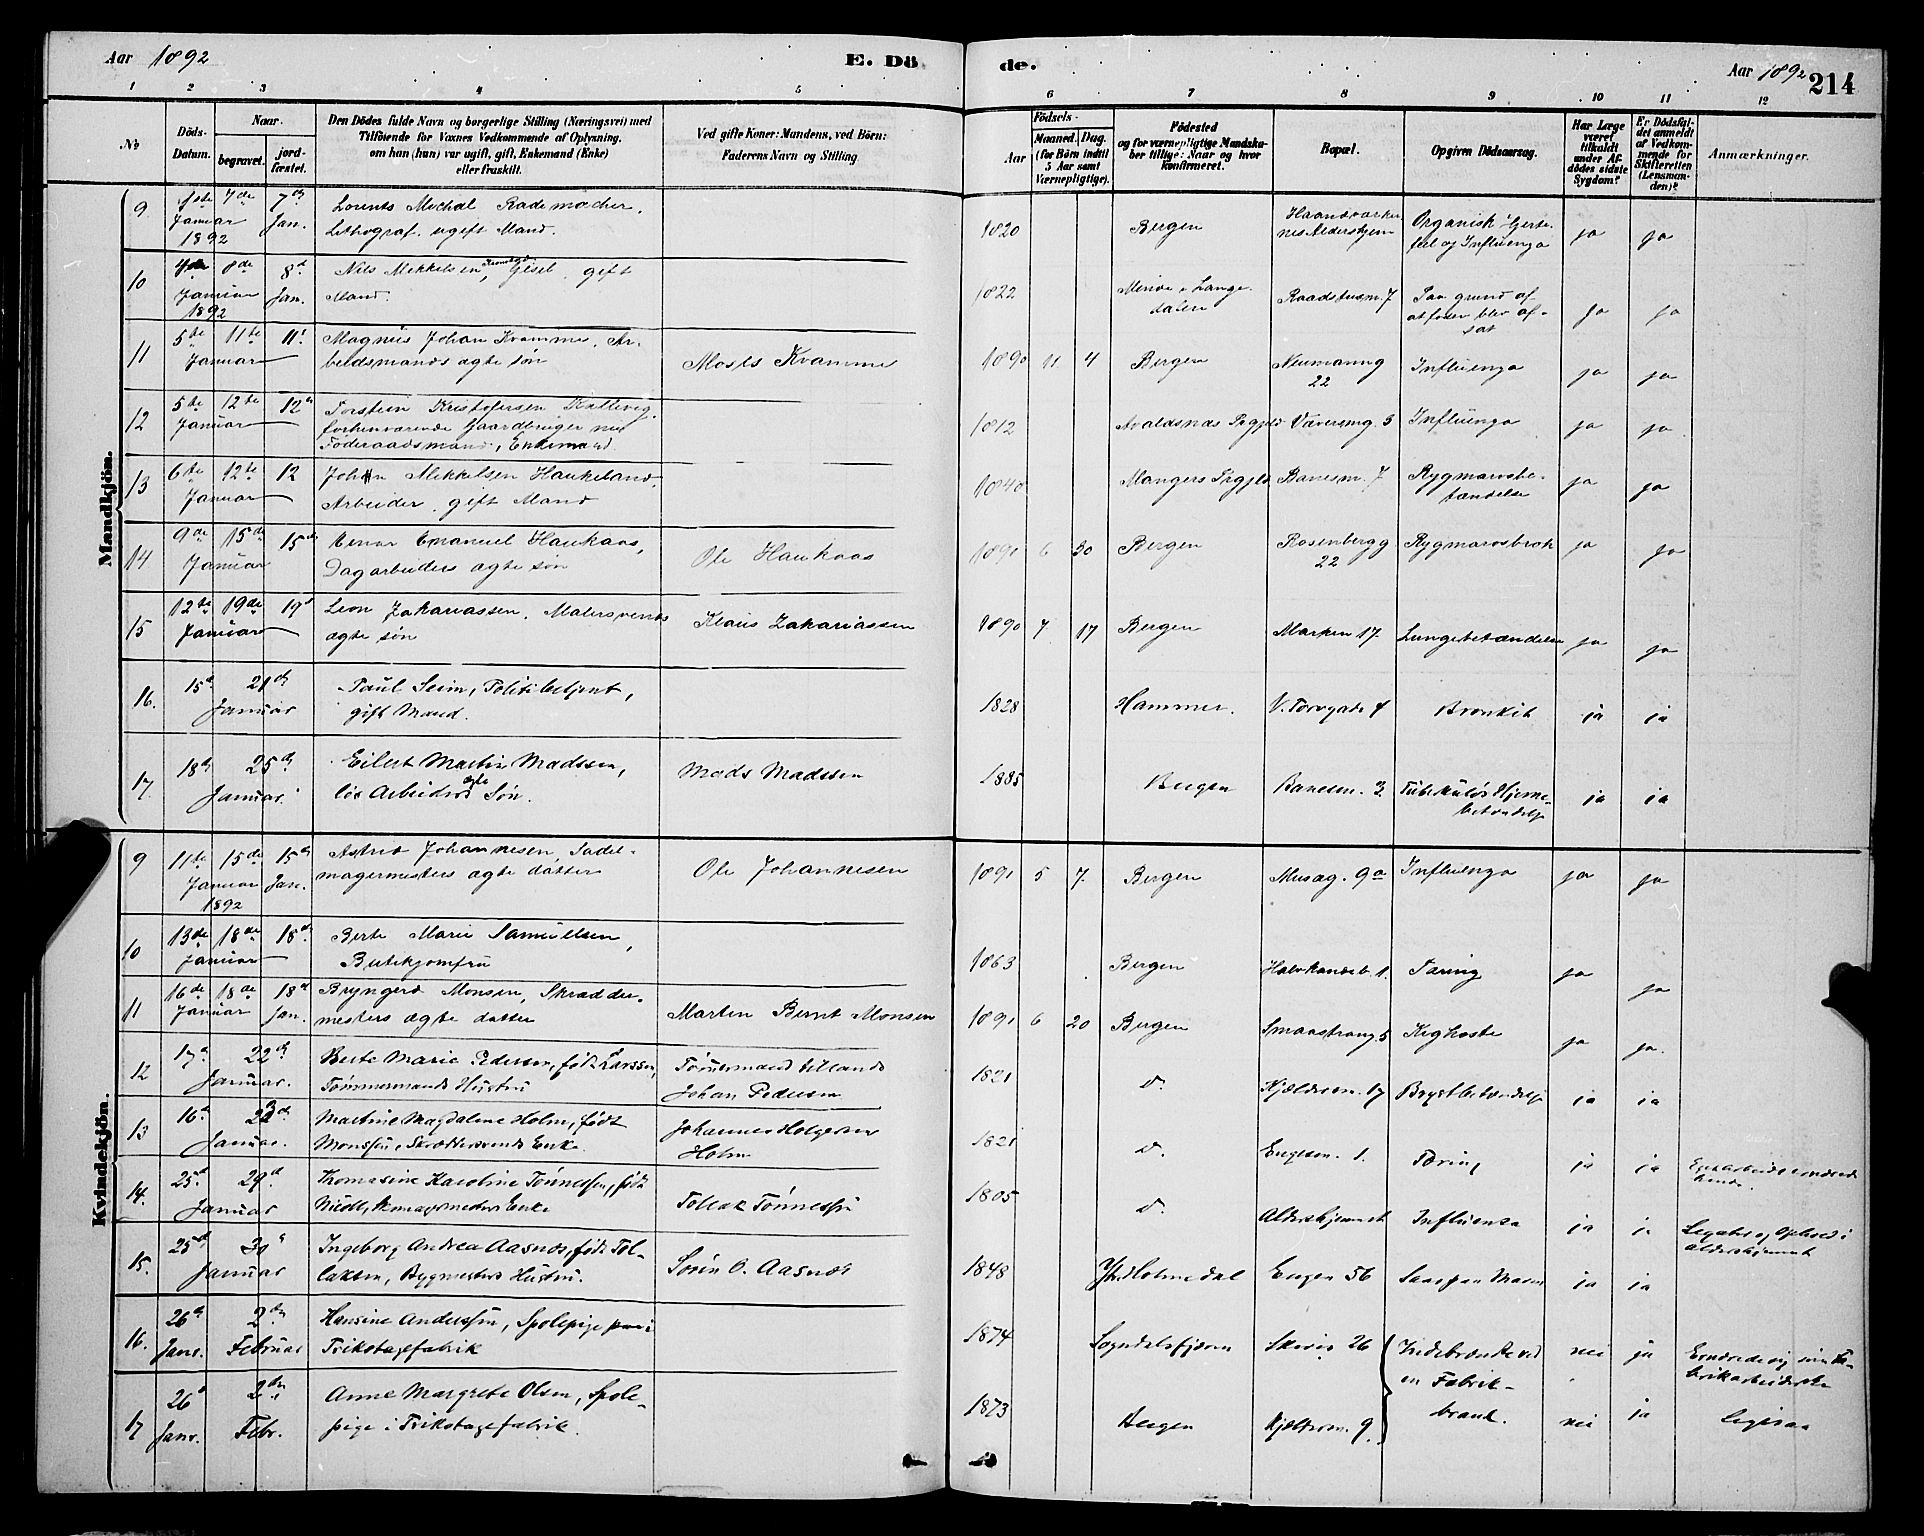 Aar 1892
E. Dö
de.
Aar 1892
214
1 2 3 4 5 6 7 8 9 10 11 12
No
Döds-Datum.
Naar.
begravet.
jord-fæstet.
Den Dödes fulde Navn og borgerlige Stilling (Næringsvei) med
Tilföiende for Voxnes Vedkommende af Oplysning,
om han (hun) var ugift, gift, Enkemand (Enke)
eller fraskilt.
Ved gifte Koner: Mandens, ved Börn:
Faderens Navn og Stilling
Födsels-
Aar
Maaned. Dag.
(for Börn indtil
5 Aar samt
Værnepligtige).
Födested
og for værnepligtige Mandska-
ber tillige: Naar og hvor
konfirmeret.
Bopæl.
Opgiven Dödsaarsag.
Har Læge
været
tilkaldt
under Af-
dödes sidste
Sygdom?
Er Dödsfal-
det anmeldt
af Vedkom-
mende for
Skifteretten
(Lensman-
den)?
Anmærkninger.
Mandkjön.
9 1ste Januar 1892 7de 7de Jan. Lorents Michal Rademacher,
Lithograf. ugift Mand. 1820 Bergen Haandværker-
nes Aldershjem Organisk Hjerte-
feil og Influenza ja ja
10 4de Januar 1892 8de 8d Jan. Nils Mikkelsen Gjesel, gift
Mand. 1822 Minde i Lange-
dalen Raadstusm. 7 Paa grund af
at foden blev af-
sat ja ja
11 5te Januar 11te 11t Magnus Johan Kvamme, Ar-
beidsmands ægte søn Mosts Kvamme 1890 11 4 Bergen Neumanng
22 Influenza ja ja
12 5te Januar 12te 12te Torstein Kristofersen Kallevig,
forhenværende Gaardbruger nu
Föderaadsmand, Enkemand. 1812 Avaldsnes Prgjeld Væversmg. 3 Influenza ja ja
13 6te Januar 12te 12 Johan Mikkelsen Haukeland,
Arbeider, gift Mand 1840 Mangers Prgjeld Banesm. 7 Rygmarvsbe-
tændelse ja ja
14 9de Januar 15de 15de Einar Emanuel Haukaas,
Dagarbeiders ægte søn Ole Haukaas 1891 6 30 Bergen Rosenbergg
22 Rygmarvsbrok ja ja
15 12te Januar 19de 19d Leon Zakariassen, Malersvends
ægte søn Klaus Zakariassen 1890 7 17 Bergen Marken 17. Lungebetændelse ja ja
16. 15d 21de Januar Paul Seim, Politibetjent,
gift Mand. 1828 Hammer. V. Torvgade 4 Bronkit ja ja
17. 18de 25de Januar. Eilert Martin Madssen,
løs Arbeiders ægte Søn. Mads Madssen 1885 Bergen Banesm. 3. Tuberkuløs Hjerne-
betændelse ja ja
Kvindekjön.
9 11te Januar 1892 15de 15de Jan. Astrid Johannesen, Sadel-
magermesters ægte datter Ole Johannesen 1891 5 7. Bergen Musæg. 9a Influenza ja ja
10 13de Januar 18de 18d. Berte Marie Samuelsen,
Butikjomfru 1863 Bergen Halvkandeb. 1. Tæring ja ja
11 16de Januar 18de 18d Jan. Bryngerd Monsen, Skrædder-
mesters ægte datter Marten Bernt Monsen 1891 6 20 Bergen Smaastrang. 5 Kighoste ja ja.
12 17d 22de Januar. Berte Marie Pedersen, født Larssen,
Tømmermands Hustru Tømmermand tillands
Johan Pedersen 1821 d. Kjældersm. 17 Brystbetændelse ja ja
13 16d 22de Januar. Martine Magdalene Holm, født
Monssen, Skræddersvends Enke. Johannes Holgersen
Holm 1821 d. Engesm. 1. Tæring ja ja
14. 25d 29d Januar Thomasine Karoline Tønnessen, født
Skomagermesters Enke Tollak Tønnessen 1805 d. Alderhjemmet Influensa ja ja Legater og Ophold i
Alderhjemmet
15. 25d 30d Januar Ingeborg Andrea Aasnæs, født Tol-
laksen, Bygmesters Hustru. Søren O. Aasnæs 1848 Ytr. Holmedal Engen 56 Saar paa Maven ja ja
16. 26d Janr. 2den Februar Hansine Anderssen, Spolepige i
Trikotagefabrik 1874 Sogndalsfjæren Skiviz 26 Indebrændte ved
en Fabrik-
brand. nei ja Ernærede sig som Fa-
brikarbeiderske
17 26d Janr. 2den Febr. Anne Margrete Olsen, Spole-
pige i Trikotagefabrik. 1873 Bergen Kjeldersm. 9. nei ja ligesaa